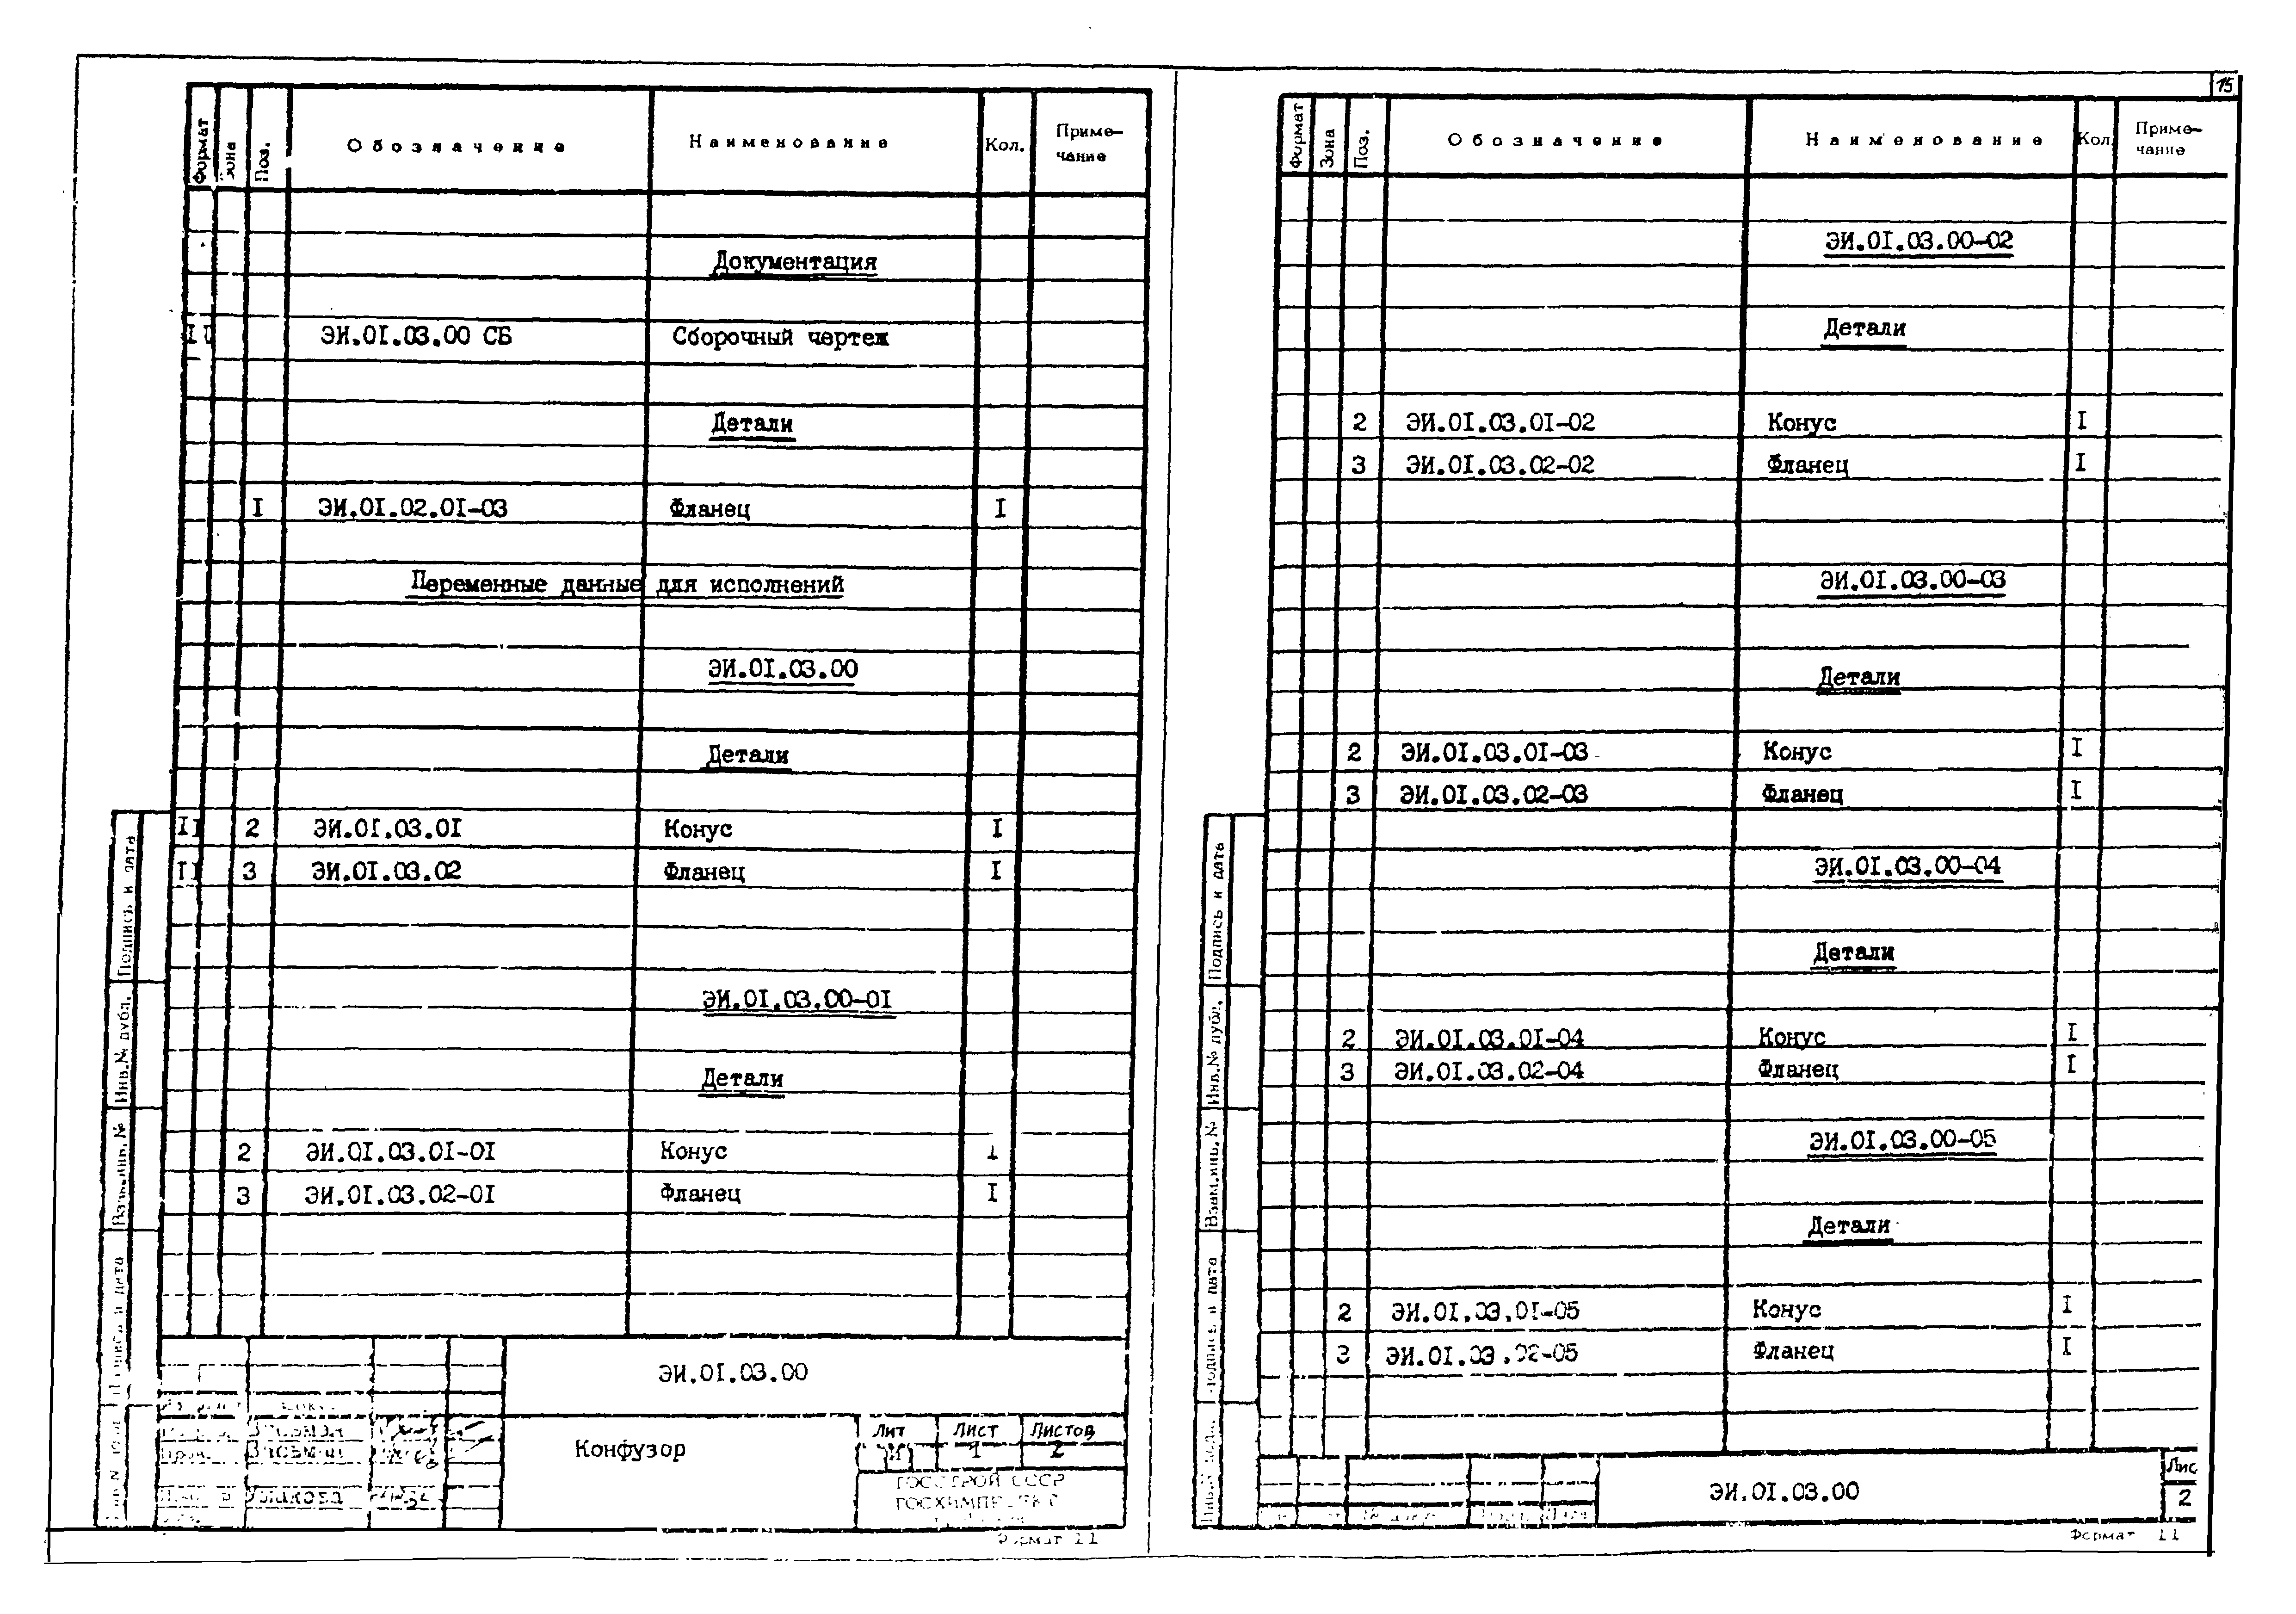 Формат Зона Поз. Обозначение Наименование Кол. Приме-
чание
Документация
ЭИ.01.03.00 СБ Сборочный чертеж
Детали
I ЭИ.0I.02.0I-03 Фланец I
Переменные данные для исполнений
ЭИ.0I.03.00
Детали
II 2 ЭИ.0I.03.0I Конус I
II 3 ЭИ.0I.03.02 Фланец I
ЭИ.0I.03.00-0I
Детали
2 ЭИ.0I.03.0I-0I Конус I
3 ЭИ.0I.03.02-0I Фланец I
Подпись и дата
Инв.№ дубл.
Взам.инв.№
Подпись и дата
ЭИ.0I.03.00
Конфузор
Лит Лист Листов
И 1 2
ГОССТРОЙ СССР
Формат 11
15
Формат Зона Поз. Обозначение Наименование Кол. Приме-
чание
ЭИ.0I.03.00-02
Детали
2 ЭИ.0I.03.0I-02 Конус I
3 ЭИ.0I.03.02-02 Фланец I
ЭИ.0I.03.00-03
Детали
2 ЭИ.0I.03.0I-03 Конус I
3 ЭИ.0I.03.02-03 Фланец I
ЭИ.0I.03.00-04
Детали
2 ЭИ.0I.03.0I-04 Конус I
3 ЭИ.0I.03.02-04 Фланец I
ЭИ.0I.03.00-05
Детали
2 ЭИ.0I.03.0I-05 Конус I
3 ЭИ.0I.03.02-05 Фланец I
Подпись и дата
Инв.№ дубл.
Взам.инв.№
Подпись и дата
ЭИ.0I.03.00
Лис
2
Формат 11